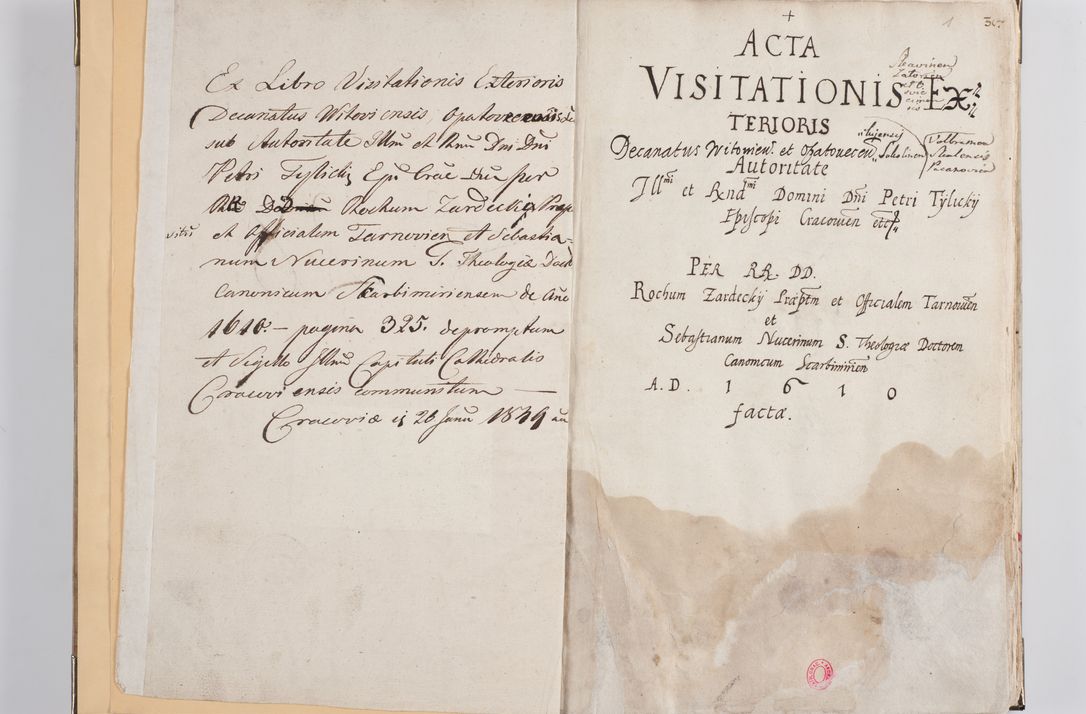 Ex Libro Visitationis Exterioris
Decanatus Witoviensis, Opatov
sub Autoritate Illmi et Rmi Dni Dni
Petri Tylicki Epi Crac. per
Rochum Zardecki Prae
et Officialem Tarnovien et Sebastia-
num Nucerinum S. Theologiæ Doct
Canonicum Skarbimiriensem de Ano
1610. — pagina 325. depromptum
et Sigillo Illmi Capituli Cathedralis
Cracoviensis communitum —
Cracoviæ 26 Junii
+
1
ACTA
VISITATIONIS EX
TERIORIS
Decanatus Witovien. et Opatovecen
Autoritate
Illmi et Rndmi Domini Dni Petri Tÿlickÿ
Episcopi Cracovien etc
PER RR. DD.
Rochum Zardeckÿ Præptm et Officialem Tarnovien
et
Sebastianum Nucerinum S. Theologiæ Doctorem
Canonicum Scarbimirien
A. D. 1610
factæ.